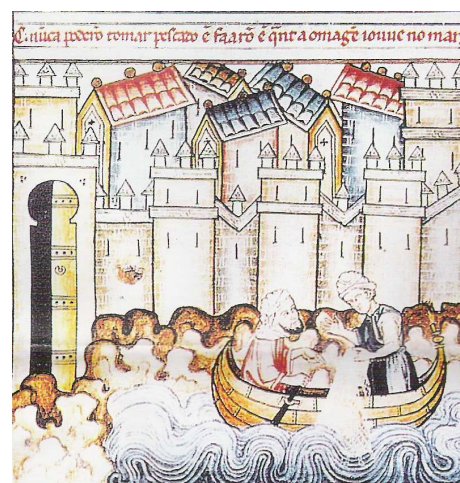 C. nũca poderõ tomar pescado ẽ faarõ ẽ qñt a omagẽ iouue no mar